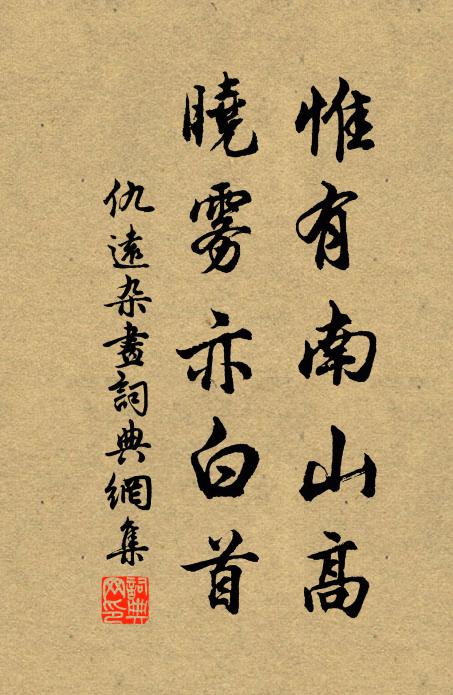 惟有南山高
曉雾亦白首
仇遠杂畫詞典網集
詞典网印